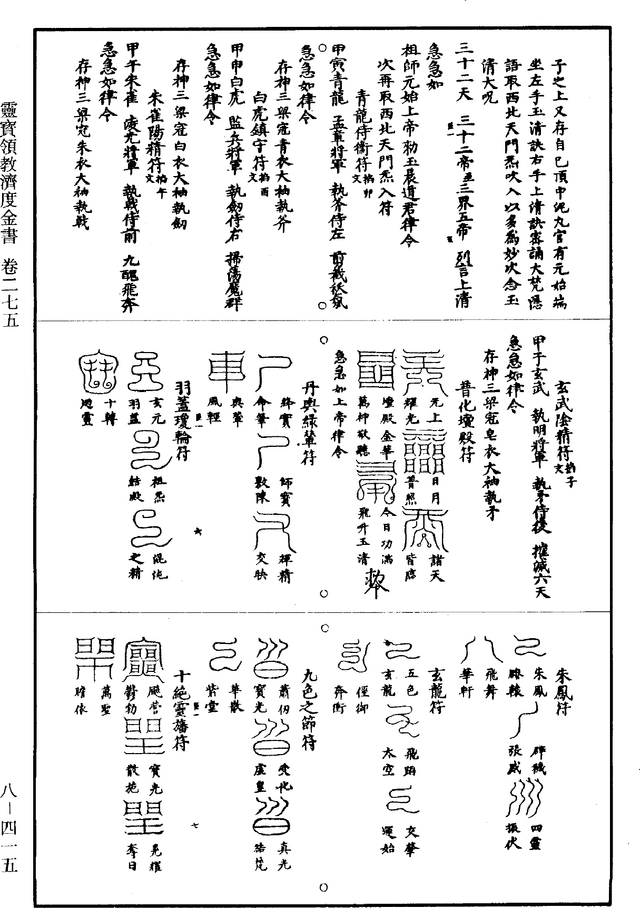 靈寶領教濟度金書 卷二七五
八—四一五
子之上又存自己頂中泥丸宮有元始端
坐左手玉清訣右手上清訣密誦大梵隱
語取西北天門炁吹入以多為妙次念玉
清大咒
三十二天 三十二帝 三界五帝 列言上清
急急如
祖師元始上帝勑玉晨道君律令
次再取西北天門炁入符
青龍侍衛符文掐卯
甲寅青龍 孟章將軍 執斧侍左 剪截祅氛
急急如律令
存神三梁冠青衣大袖執斧
白虎鎮守符文掐酉
甲申白虎 監兵將軍 執劒侍右 掃蕩魔群
急急如律令
存神三梁冠白衣大袖執劒
朱雀陽精符文掐午
甲午朱雀 凌光將軍 執戟侍前 九醜飛奔
急急如律令
存神三梁冠朱衣大袖執戟
玄武陰精符文掐子
甲子玄武 執明將軍 執矛侍後 摧滅六天
急急如律令
存神三梁冠皂衣大袖執矛
普化壇殿符
元上耀光
日月普照
諸天皆臨
壇殿金華
萬神敬聽
今日功滿
飛升玉清
急急如上帝律令
丹輿綠輦符
降實命筆
師實敷陳
輝精交映
與輦風輕
羽蓋瓊輪符
六
玄元羽蓋
祖炁結殿
混沌之精
十轉
朱鳳符
朱鳳
辟穢張威
四靈振伏
飛舞華軒
玄龍符
五色玄龍
飛蹈太空
交肇運始
徑御齊衡
九色之節符
蕭仞寶光
受化虛皇
真光
華散紫堂
十絕靈旛符
七
飈營鬱勃
寶光散施
晃耀奪日
萬聖雖依